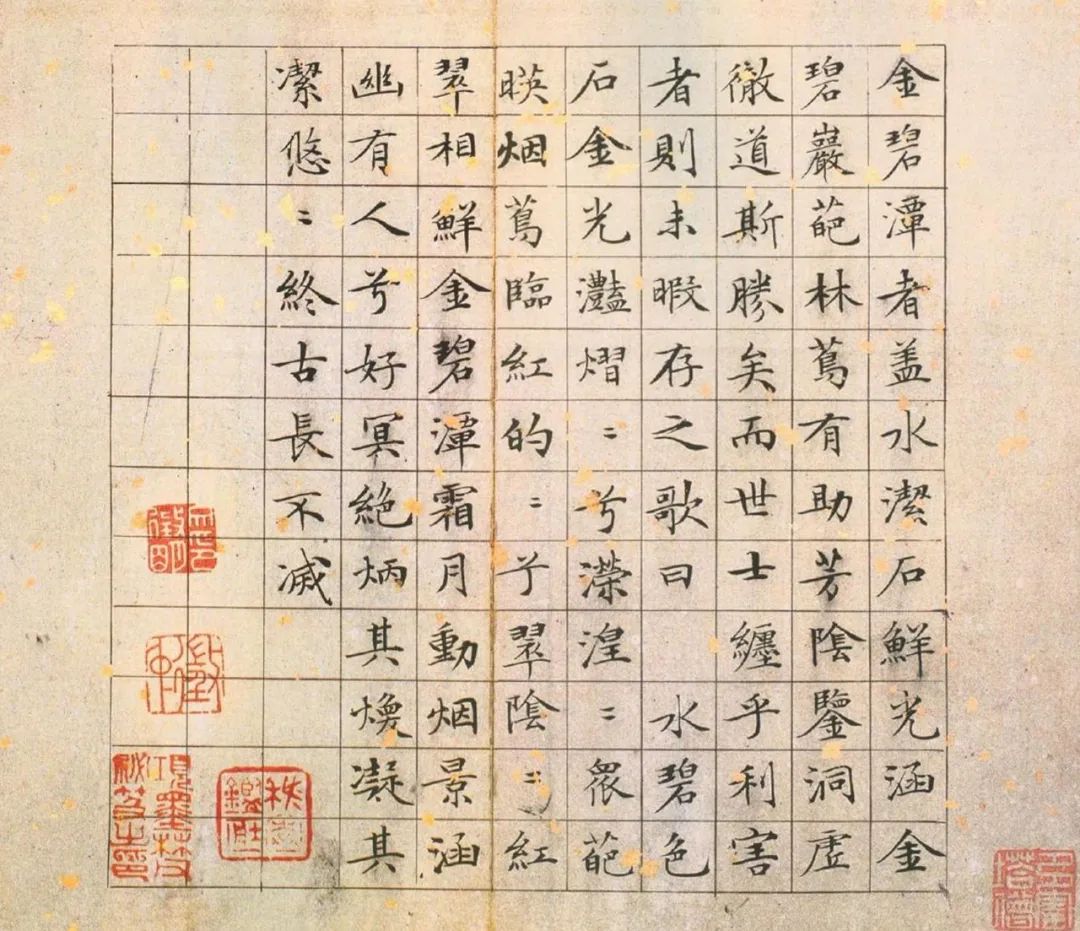 金碧潭者盖水潔石鮮光涵金
碧巖葩林蔦有助芳陰鑒洞虛
徹道斯勝矣而世士纏乎利害
者則未暇存之歌曰 水碧色
石金光灩熠〻兮瀠湟〻衆葩
暎烟蔦臨紅的〻兮翠陰〻紅
翠相鮮金碧潭霜月動烟景涵
幽有人兮好冥絶炳其煥凝其
潔悠〻終古長不滅
項墨林父秘笈之印